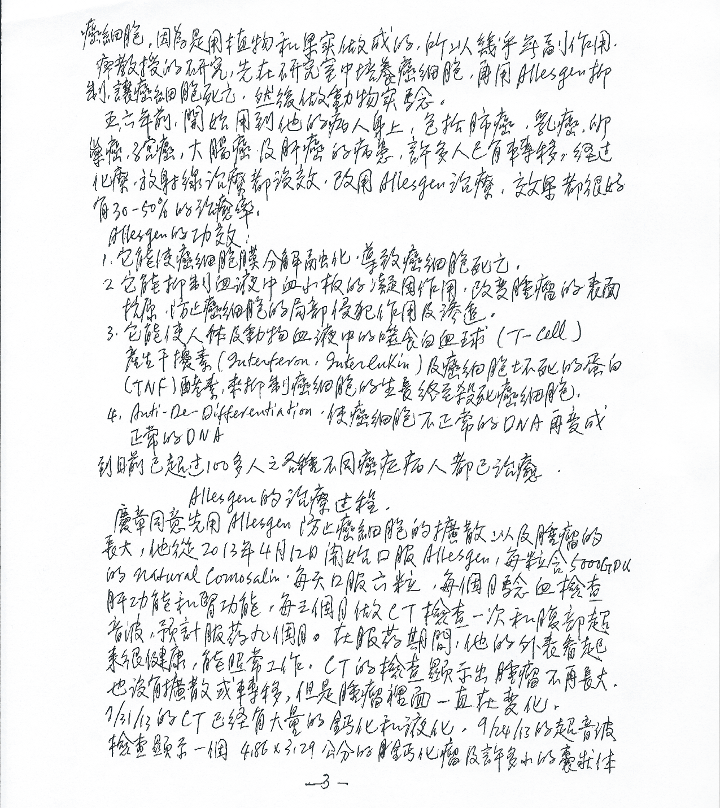 癌細胞,因為是用植物和果实做成的,所以幾乎無副作用.
教授的研究,先在研究室中培養癌細胞,再用Allesgen抑
制,讓癌細胞死亡,然後做動物实驗。
五六年前,開始用到他的病人身上,包括肺癌,乳癌,卵
巢癌,子宮癌,大腸癌及肝癌的病患,許多人已有轉移,經过
化療,放射線治療都没效,改用Allesgen治療,效果都很好
有30-50%的治癒率.
Allesgen的功效:
1.它能使癌細胞膜分解融化,導致癌細胞死亡.
2它能抑制血液中血小板的凝固作用,改变腫瘤的表面
抗原,防止癌細胞的局部侵犯作用及滲透.
3.它能使人体及動物血液中的噬食白血球(T-cell)
產生干擾素(Interferon,Interlukin)及癌細胞坏死的蛋白
(TNF)酵素,來抑制癌細胞的生長終至殺死癌細胞.
4.Anti-De-Differentiation,使癌細胞不正常的DNA再变成
正常的DNA
到目前已超过100多人之各種不同癌症病人都已治癒.
Allesgen的治療过程.
慶章同意先用Allesgen防止癌細胞的擴散以及腫瘤的
長大,他從2013年4月12日開始口服Allesgen,每粒含5000GDU
的natural Comosalin.每天口服六粒,每個月驗血檢查
肝功能和腎功能,每三個月做CT檢查一次和腹部超
音波,預計服药九個月。在服药期間,他的外表看起
來很健康,能照常工作.CT的檢查顯示出腫瘤不再長大.
也没有擴散或轉移,但是腫瘤裡面一直在变化.
7/31/13的CT已經有大量的鈣化和液化.9/24/13的超音波
檢查顯示一個4.86x3.29公分的鈣化瘤及許多小的囊狀体
-3-